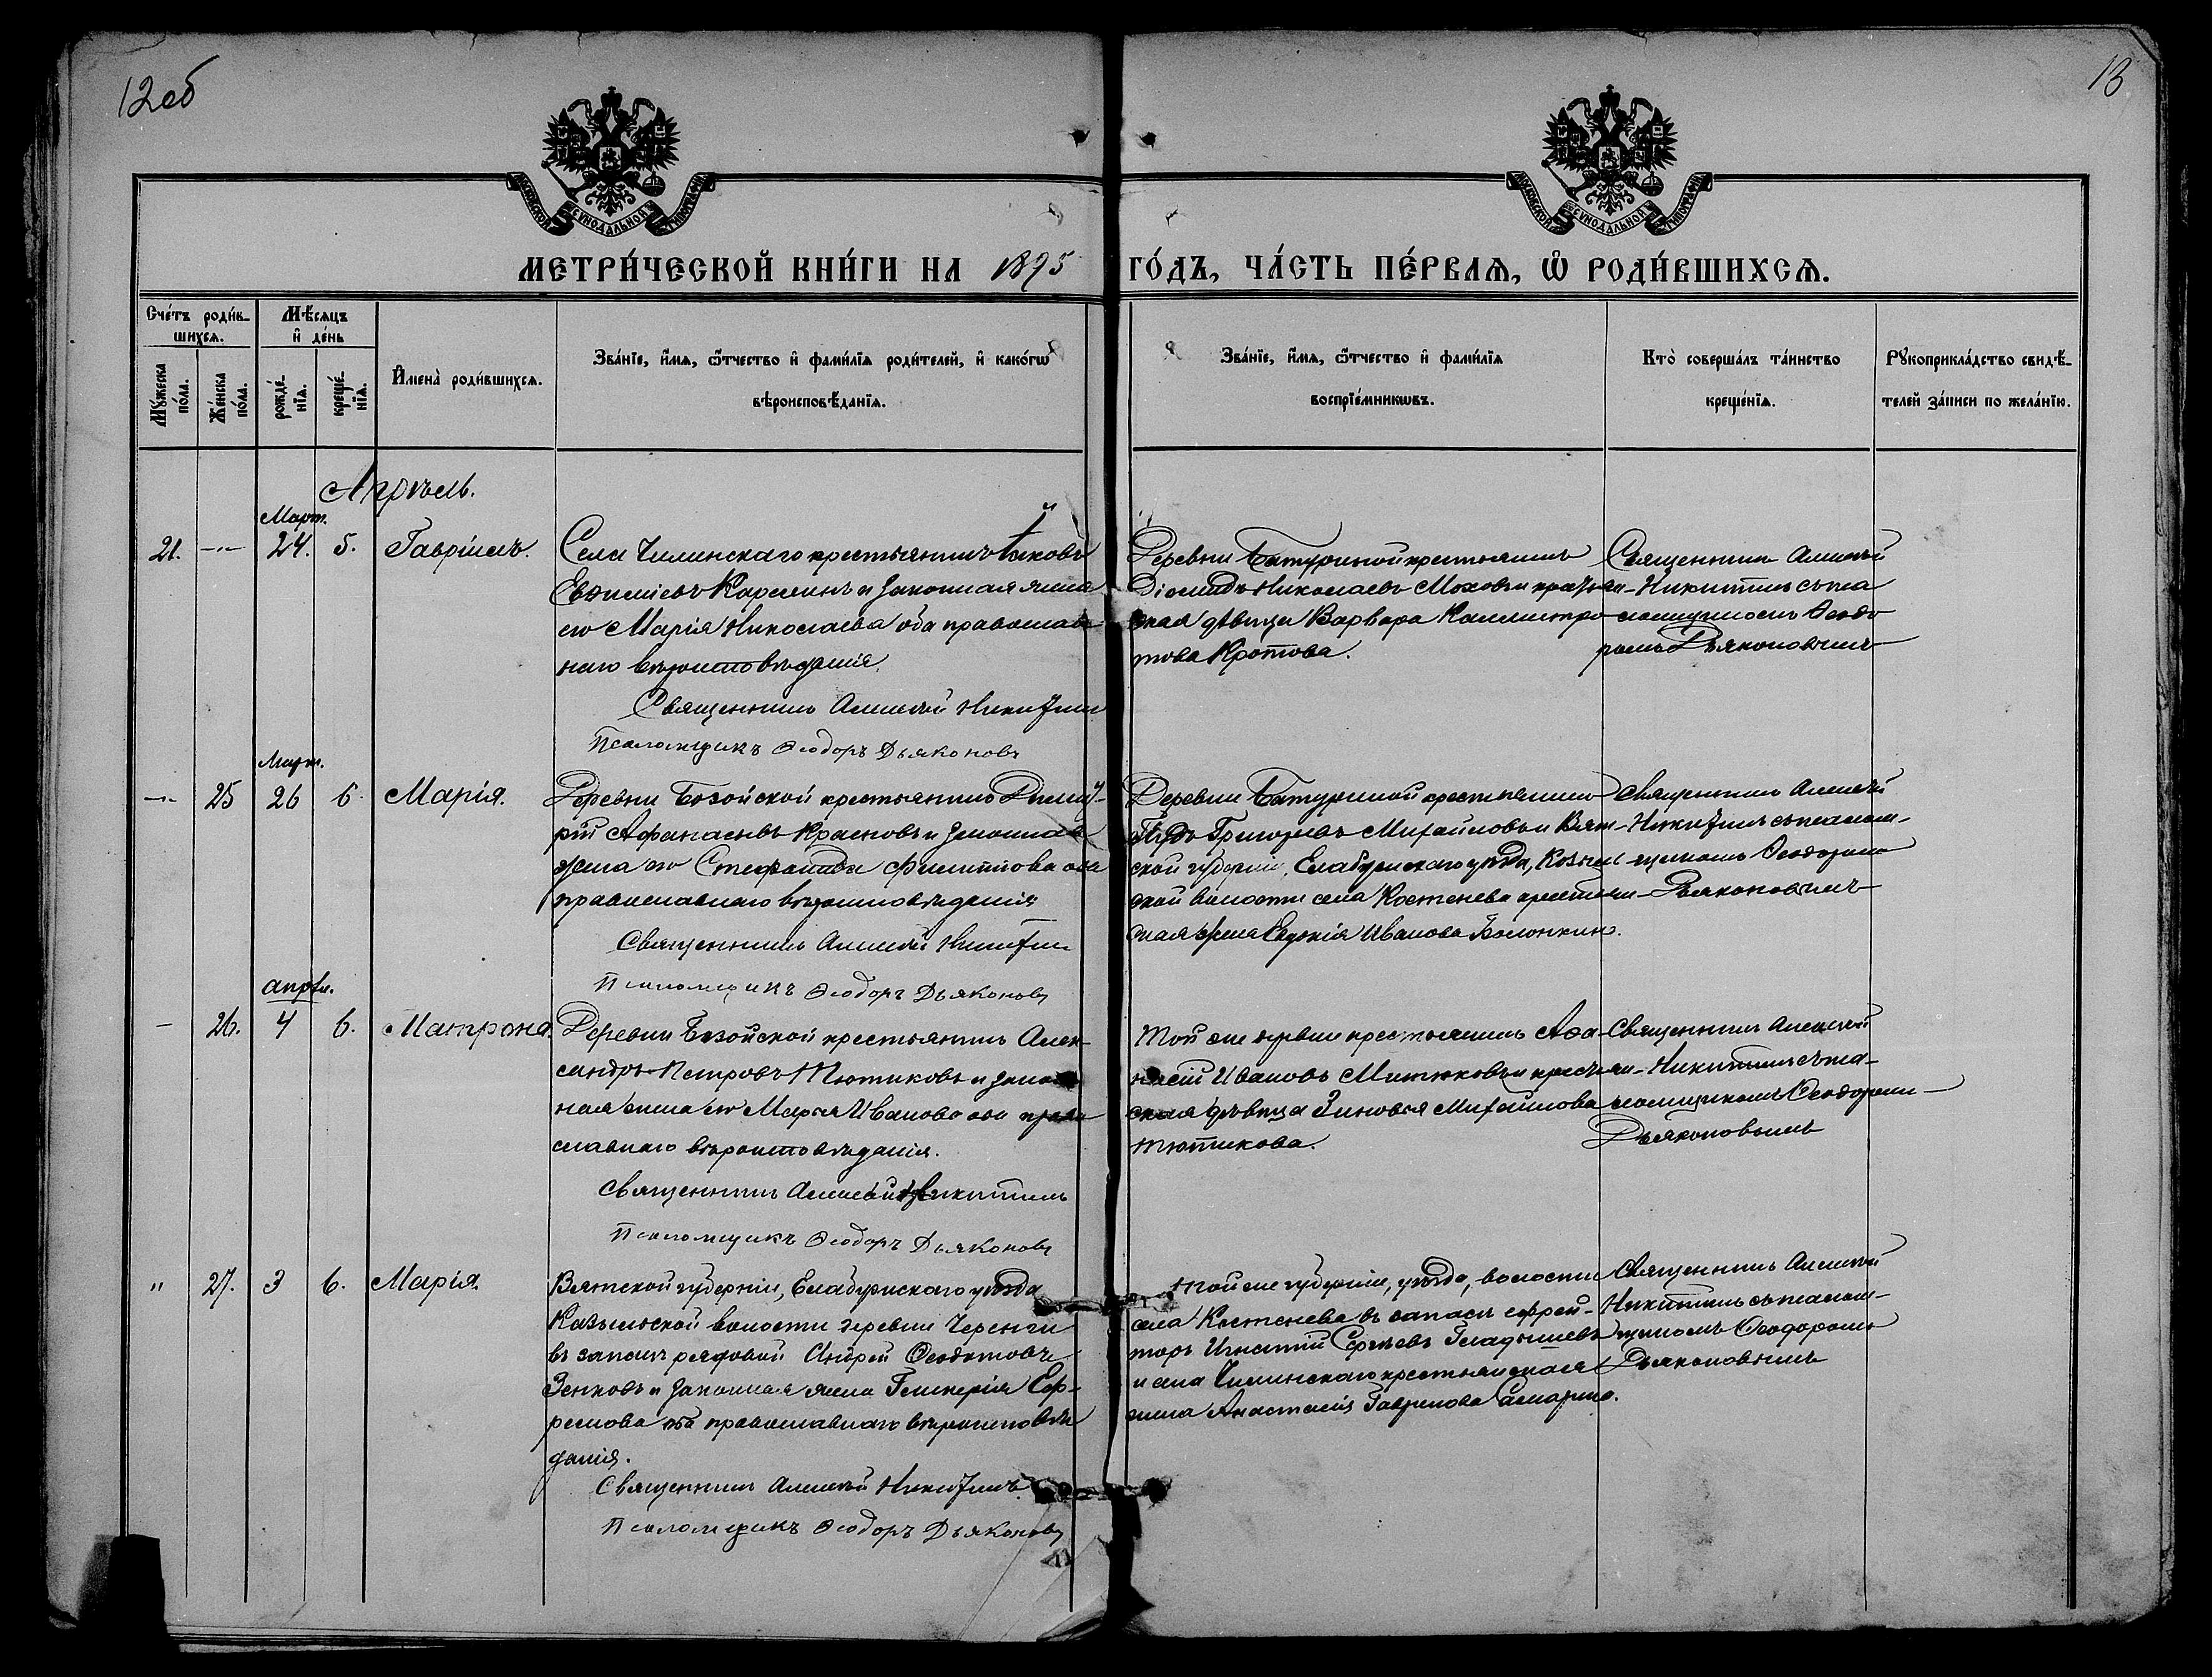 12об
13
МОСКОВСКОЙ СѴНОДАЛЬНОЙ ТИПОГРАФІИ
МОСКОВСКОЙ СѴНОДАЛЬНОЙ ТИПОГРАФІИ
МЕТРИ́ЧЕСКОЙ КНИ́ГИ НА 1895 ГО́ДЪ, ЧА́СТЬ ПЕ́РВАѦ, Ѡ҆ РОДИ́ВШИХСѦ.
Сче́тъ роди́в-
шихсѧ.
Мꙋ́жеска по́ла.
Же́нска по́ла.
Мѣ́сѧцъ
и҆ де́нь
рожде́-
нїѧ.
креще́-
нїѧ.
И҆мена̀ роди́вшихсѧ.
Зва́нїе, и҆́мѧ, ѻ҆́тчество и҆ фами́лїѧ роди́телей, и҆ како́гѡ
вѣроисповѣ́данїѧ.
Зва́нїе, и҆́мѧ, ѻ҆́тчество и҆ фами́лїѧ
воспрїе́мникѡвъ.
Кто̀ соверша́лъ та́инство
креще́нїѧ.
Рꙋкоприкла́дство свидѣ́-
телей за́писи по жела́нїю.
Апрѣль.
Март.
21. —"— 24. 5. Гавріилъ.
Села Чилинскаго крестьянинъ Іаковъ
Евѳиміевъ Карелинъ и законная жена
его Марія Николаева оба православ
наго вѣроисповѣданія.
Священникъ Алексѣй Никитин
Псаломщикъ Ѳеодоръ Дьяконовъ
Деревни Батуриной крестьянинъ
Діомидъ Николаевъ Моховъ и крестьян-
ская дѣвица Варвара Каллистра
това Кротова.
Священник Алексѣй
Никитинъ съ пса
ломщикомъ Ѳеодо
ромъ Дьяконовымъ
Март.
—"— 25 26 6. Марія.
Деревни Базойской крестьянинъ Димит-
рій Афанасьевъ Красновъ и законная
жена его Стефанида Филиппова оба
православнаго вѣроисповѣданія
Священникъ Алексѣй Никитин
Псаломщикъ Ѳеодоръ Дьяконовъ
Деревни Батуриной крестьянинъ
Григорьевъ Михайловъ и Вят-
ской губерніи, Елабужскаго уѣзда, Козыль
ской волости села Костенева крестьян-
ская жена Евдокія Иванова Болонкина.
Священникъ Алексѣй
Никитинъ съ псалом-
щикомъ Ѳеодоромъ
Дьяконовымъ
апрѣл.
— 26. 4 6. Матрона.
Деревни Базойской крестьянинъ Алек-
сандръ Петровъ Тютиковъ и закон
ная жена его Марья Иванова оба право
славнаго вѣроисповѣданія.
Священникъ Алексѣй Никитинъ
Псаломщикъ Ѳеодоръ Дьяконовъ
Той же деревни крестьянинъ Аѳа-
насій Ивановъ Митюковъ и крестьян-
ская дѣвица Зиновья Михайлова
Тютикова.
Священникъ Алексѣй
Никитинъ съ пса-
ломщикомъ Ѳеодоромъ
Дьяконовымъ
" 27. 3 6. Марія.
Вятской губерніи, Елабужскаго уѣзда
Козыльской волости деревни
въ запасѣ рядовой Андрей Ѳеодотовъ
Зенковъ и законная жена Гликерія Еф-
ремова оба православнаго вѣроисповѣ
данія.
Священникъ Алексѣй Никитинъ
Псаломщикъ Ѳеодоръ Дьяконовъ
Той же губерніи, уѣзда, волости
села Костенева въ запасѣ ефрей-
торъ Игнатій Сергѣевъ Гладышевъ
и села Чилинскаго крестьянская
жена Анастасія Гаврилова Самарина.
Священникъ Алексѣй
Никитинъ съ псалом-
щикомъ Ѳеодоромъ
Дьяконовымъ